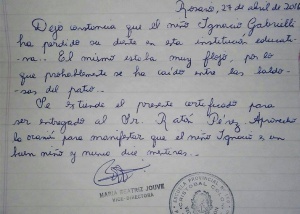 Rosario, 27 de abril de 2016
Dejo constancia que el niño Ignacio Gabrielli
ha perdido su diente en esta institución educati-
va. El mismo estaba muy flojo, por lo
que probablemente se ha caído entre las baldo-
sas del patio.
Se extiende el presente certificado para
ser entregado al Sr. Ratón Pérez. Aprovecho
la ocasión para manifestar que el niño Ignacio es un
buen niño y nunca dice mentiras.
MARÍA BEATRIZ JOUVE
VICE DIRECTORA
ESCUELA PROVINCIAL